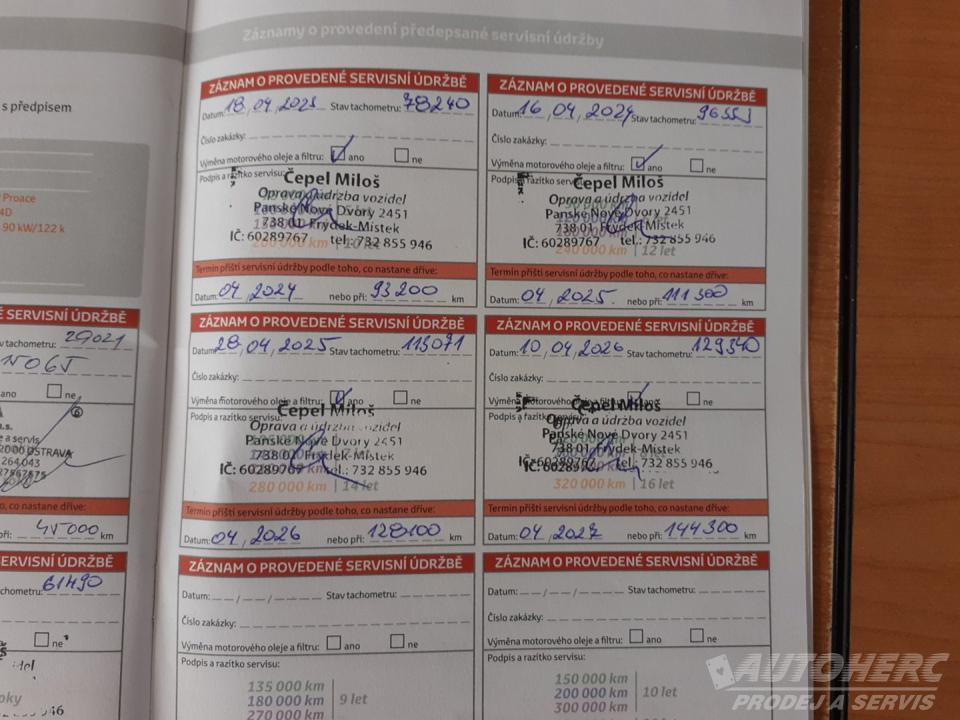 Záznamy o provedení předepsané servisní údržby
s předpisem
Proace
4D
90 kW/122 k
SERVISNÍ ÚDRŽBĚ
tachometru: 29021
ano ne
a servis
OSTRAVA
264043
co nastane dříve:
45000 km
SERVISNÍ ÚDRŽBĚ
chometru: 61490
ne
oky
ZÁZNAM O PROVEDENÉ SERVISNÍ ÚDRŽBĚ
Datum: 18.04.2023 Stav tachometru: 78240
Číslo zakázky:
Výměna motorového oleje a filtru: ano ne
Podpis a razítko servisu:
Čepel Miloš
Oprava a údržba vozidel
Panské Nové Dvory 2451
738 01 Frýdek-Místek
IČ: 60289767 tel.: 732 855 946
200 000 km 10 let
Termín příští servisní údržby podle toho, co nastane dříve:
Datum: 04.2024 nebo při: 93200 km
ZÁZNAM O PROVEDENÉ SERVISNÍ ÚDRŽBĚ
Datum: 16.04.2024 Stav tachometru: 96553
Číslo zakázky:
Výměna motorového oleje a filtru: ano ne
Podpis a razítko servisu:
Čepel Miloš
Oprava a údržba vozidel
Panské Nové Dvory 2451
738 01 Frýdek-Místek
IČ: 60289767 tel.: 732 855 946
240 000 km 12 let
Termín příští servisní údržby podle toho, co nastane dříve:
Datum: 04.2025 nebo při: 111300 km
ZÁZNAM O PROVEDENÉ SERVISNÍ ÚDRŽBĚ
Datum: 28.04.2025 Stav tachometru: 113071
Číslo zakázky:
Výměna motorového oleje a filtru: ano ne
Podpis a razítko servisu:
Čepel Miloš
Oprava a údržba vozidel
Panské Nové Dvory 2451
738 01 Frýdek-Místek
IČ: 60289767 tel.: 732 855 946
280 000 km 14 let
Termín příští servisní údržby podle toho, co nastane dříve:
Datum: 04.2026 nebo při: 128100 km
ZÁZNAM O PROVEDENÉ SERVISNÍ ÚDRŽBĚ
Datum: 10.04.2026 Stav tachometru: 129340
Číslo zakázky:
Výměna motorového oleje a filtru: ano ne
Podpis a razítko servisu:
Čepel Miloš
Oprava a údržba vozidel
Panské Nové Dvory 2451
738 01 Frýdek-Místek
IČ: 60289767 tel.: 732 855 946
320 000 km 16 let
Termín příští servisní údržby podle toho, co nastane dříve:
Datum: 04.2027 nebo při: 144300 km
ZÁZNAM O PROVEDENÉ SERVISNÍ ÚDRŽBĚ
Datum: Stav tachometru:
Číslo zakázky:
Výměna motorového oleje a filtru: ano ne
Podpis a razítko servisu:
135 000 km
180 000 km 9 let
270 000 km
ZÁZNAM O PROVEDENÉ SERVISNÍ ÚDRŽBĚ
Datum: Stav tachometru:
Číslo zakázky:
Výměna motorového oleje a filtru: ano ne
Podpis a razítko servisu:
150 000 km
200 000 km 10 let
300 000 km
AUTOHERC
PRODEJ A SERVIS